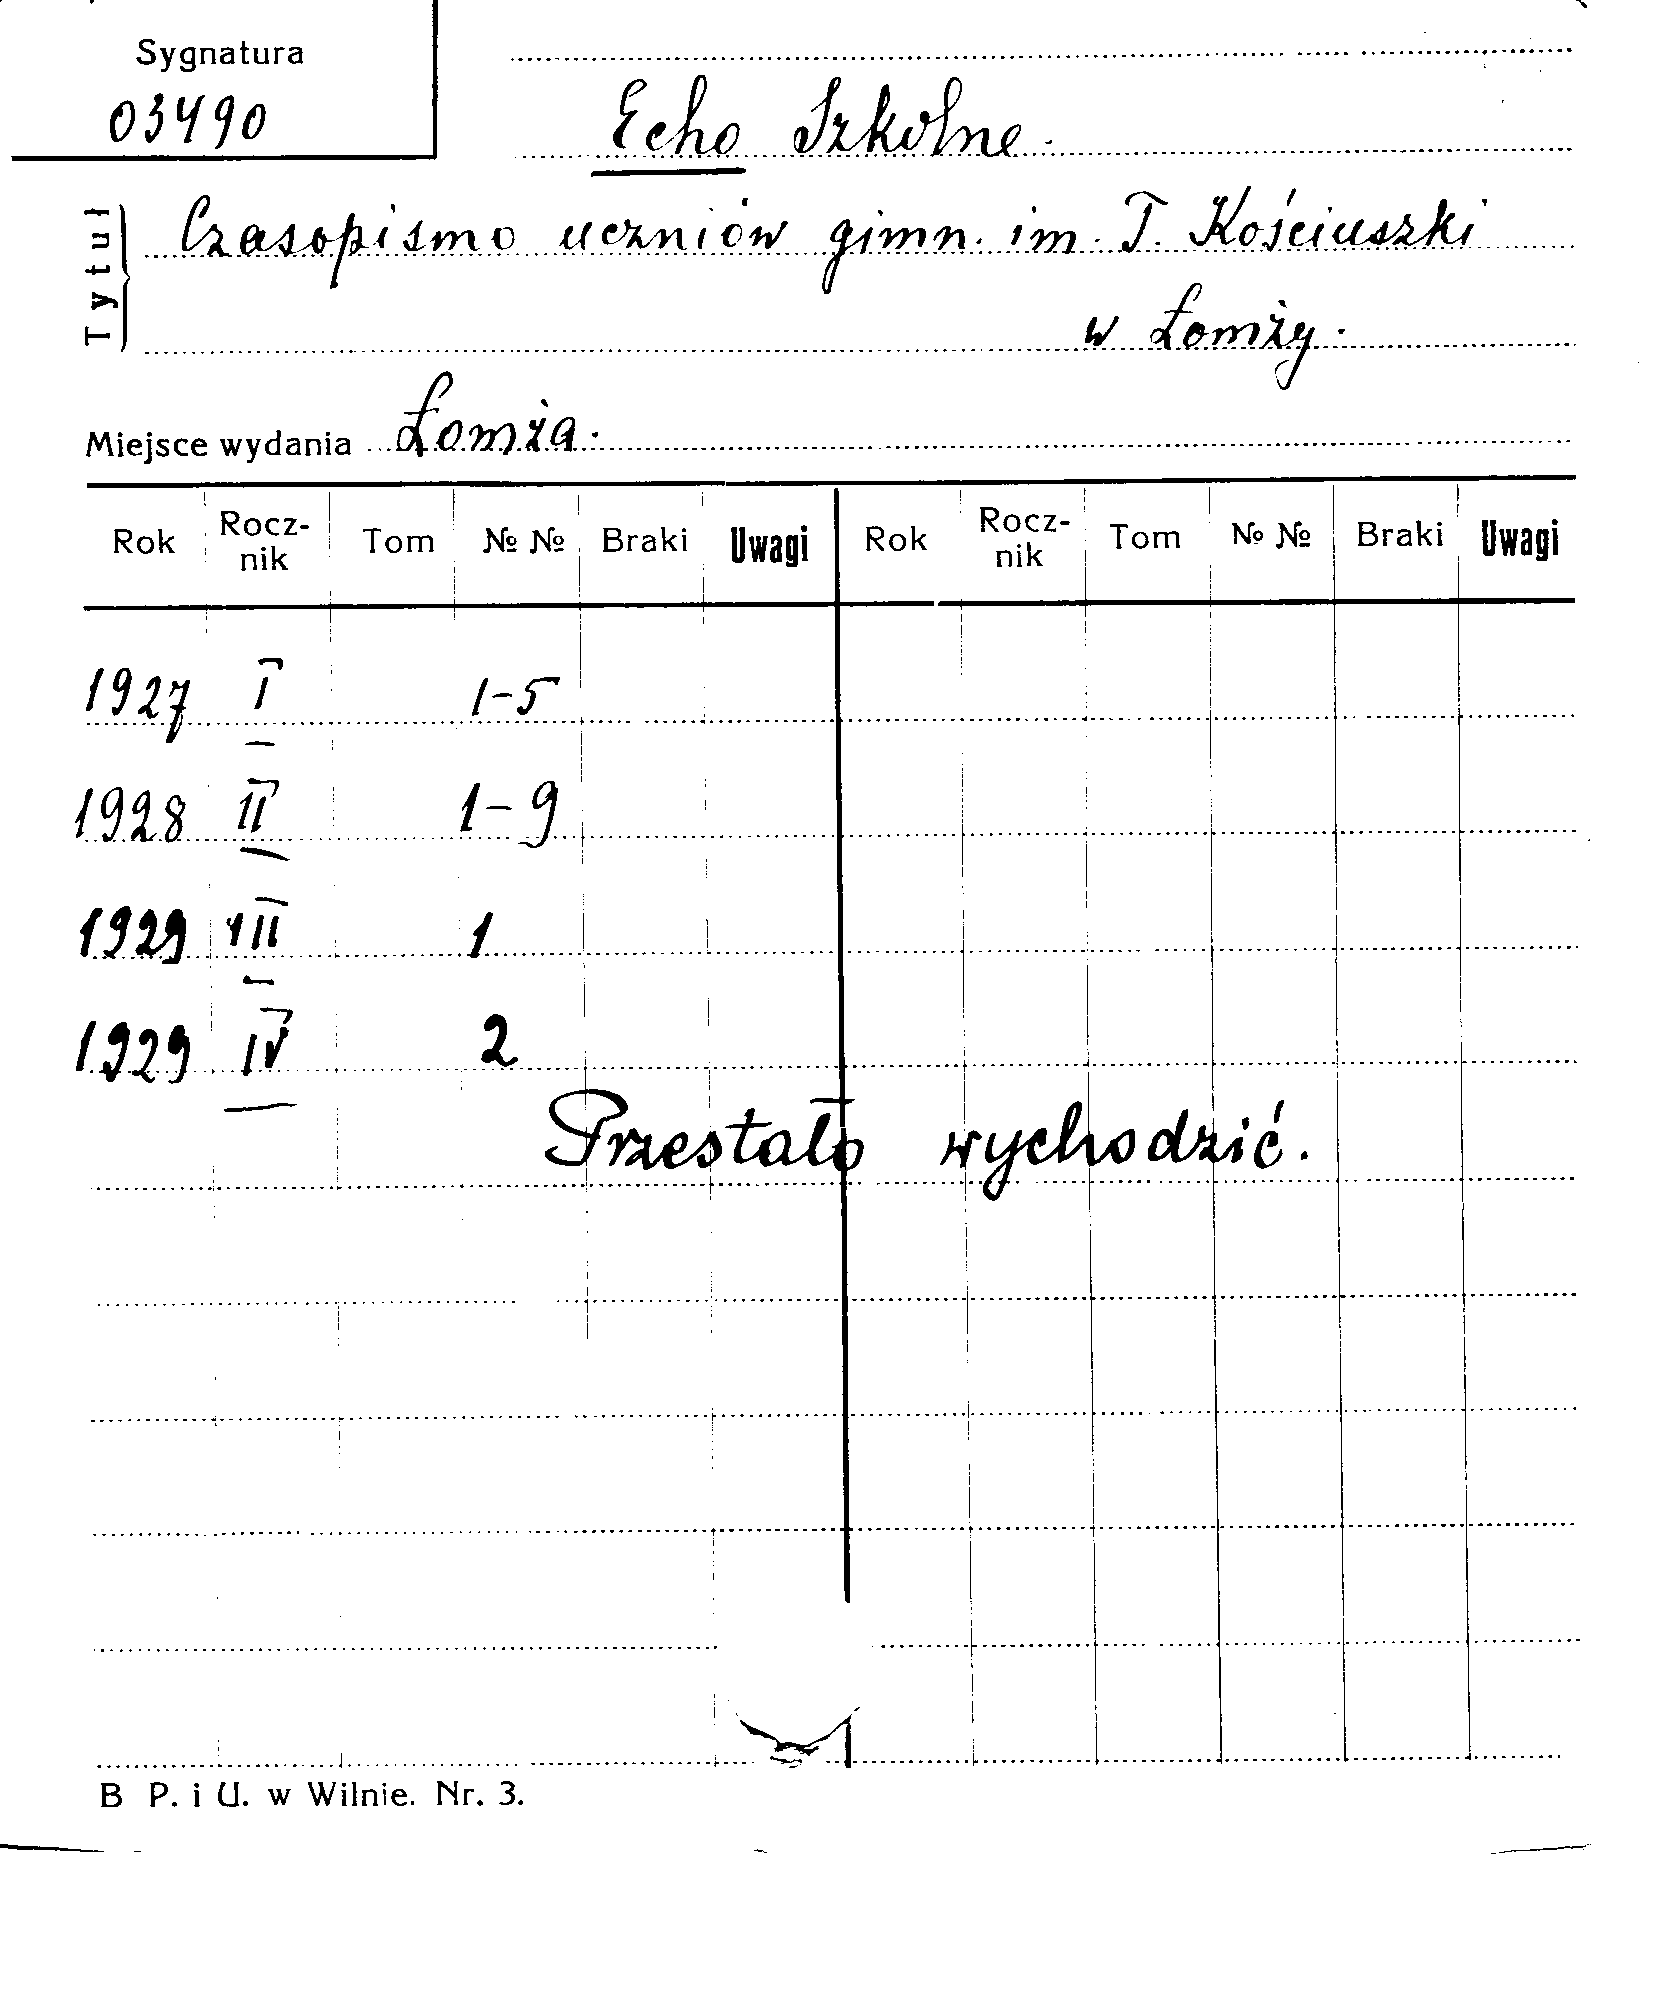 Sygnatura
03490
Echo Szkolne.
Tytuł
Czasopismo uczniów gimn. im. T. Kościuszki
w Łomży.
Miejsce wydania Łomża.
Rok Rocz-nik Tom № № Braki Uwagi Rok Rocz-nik Tom № № Braki Uwagi
1927 I 1-5
1928 II 1-9
1929 III 1
1929 IV 2
Przestało wychodzić.
B P. i U. w Wilnie. Nr. 3.